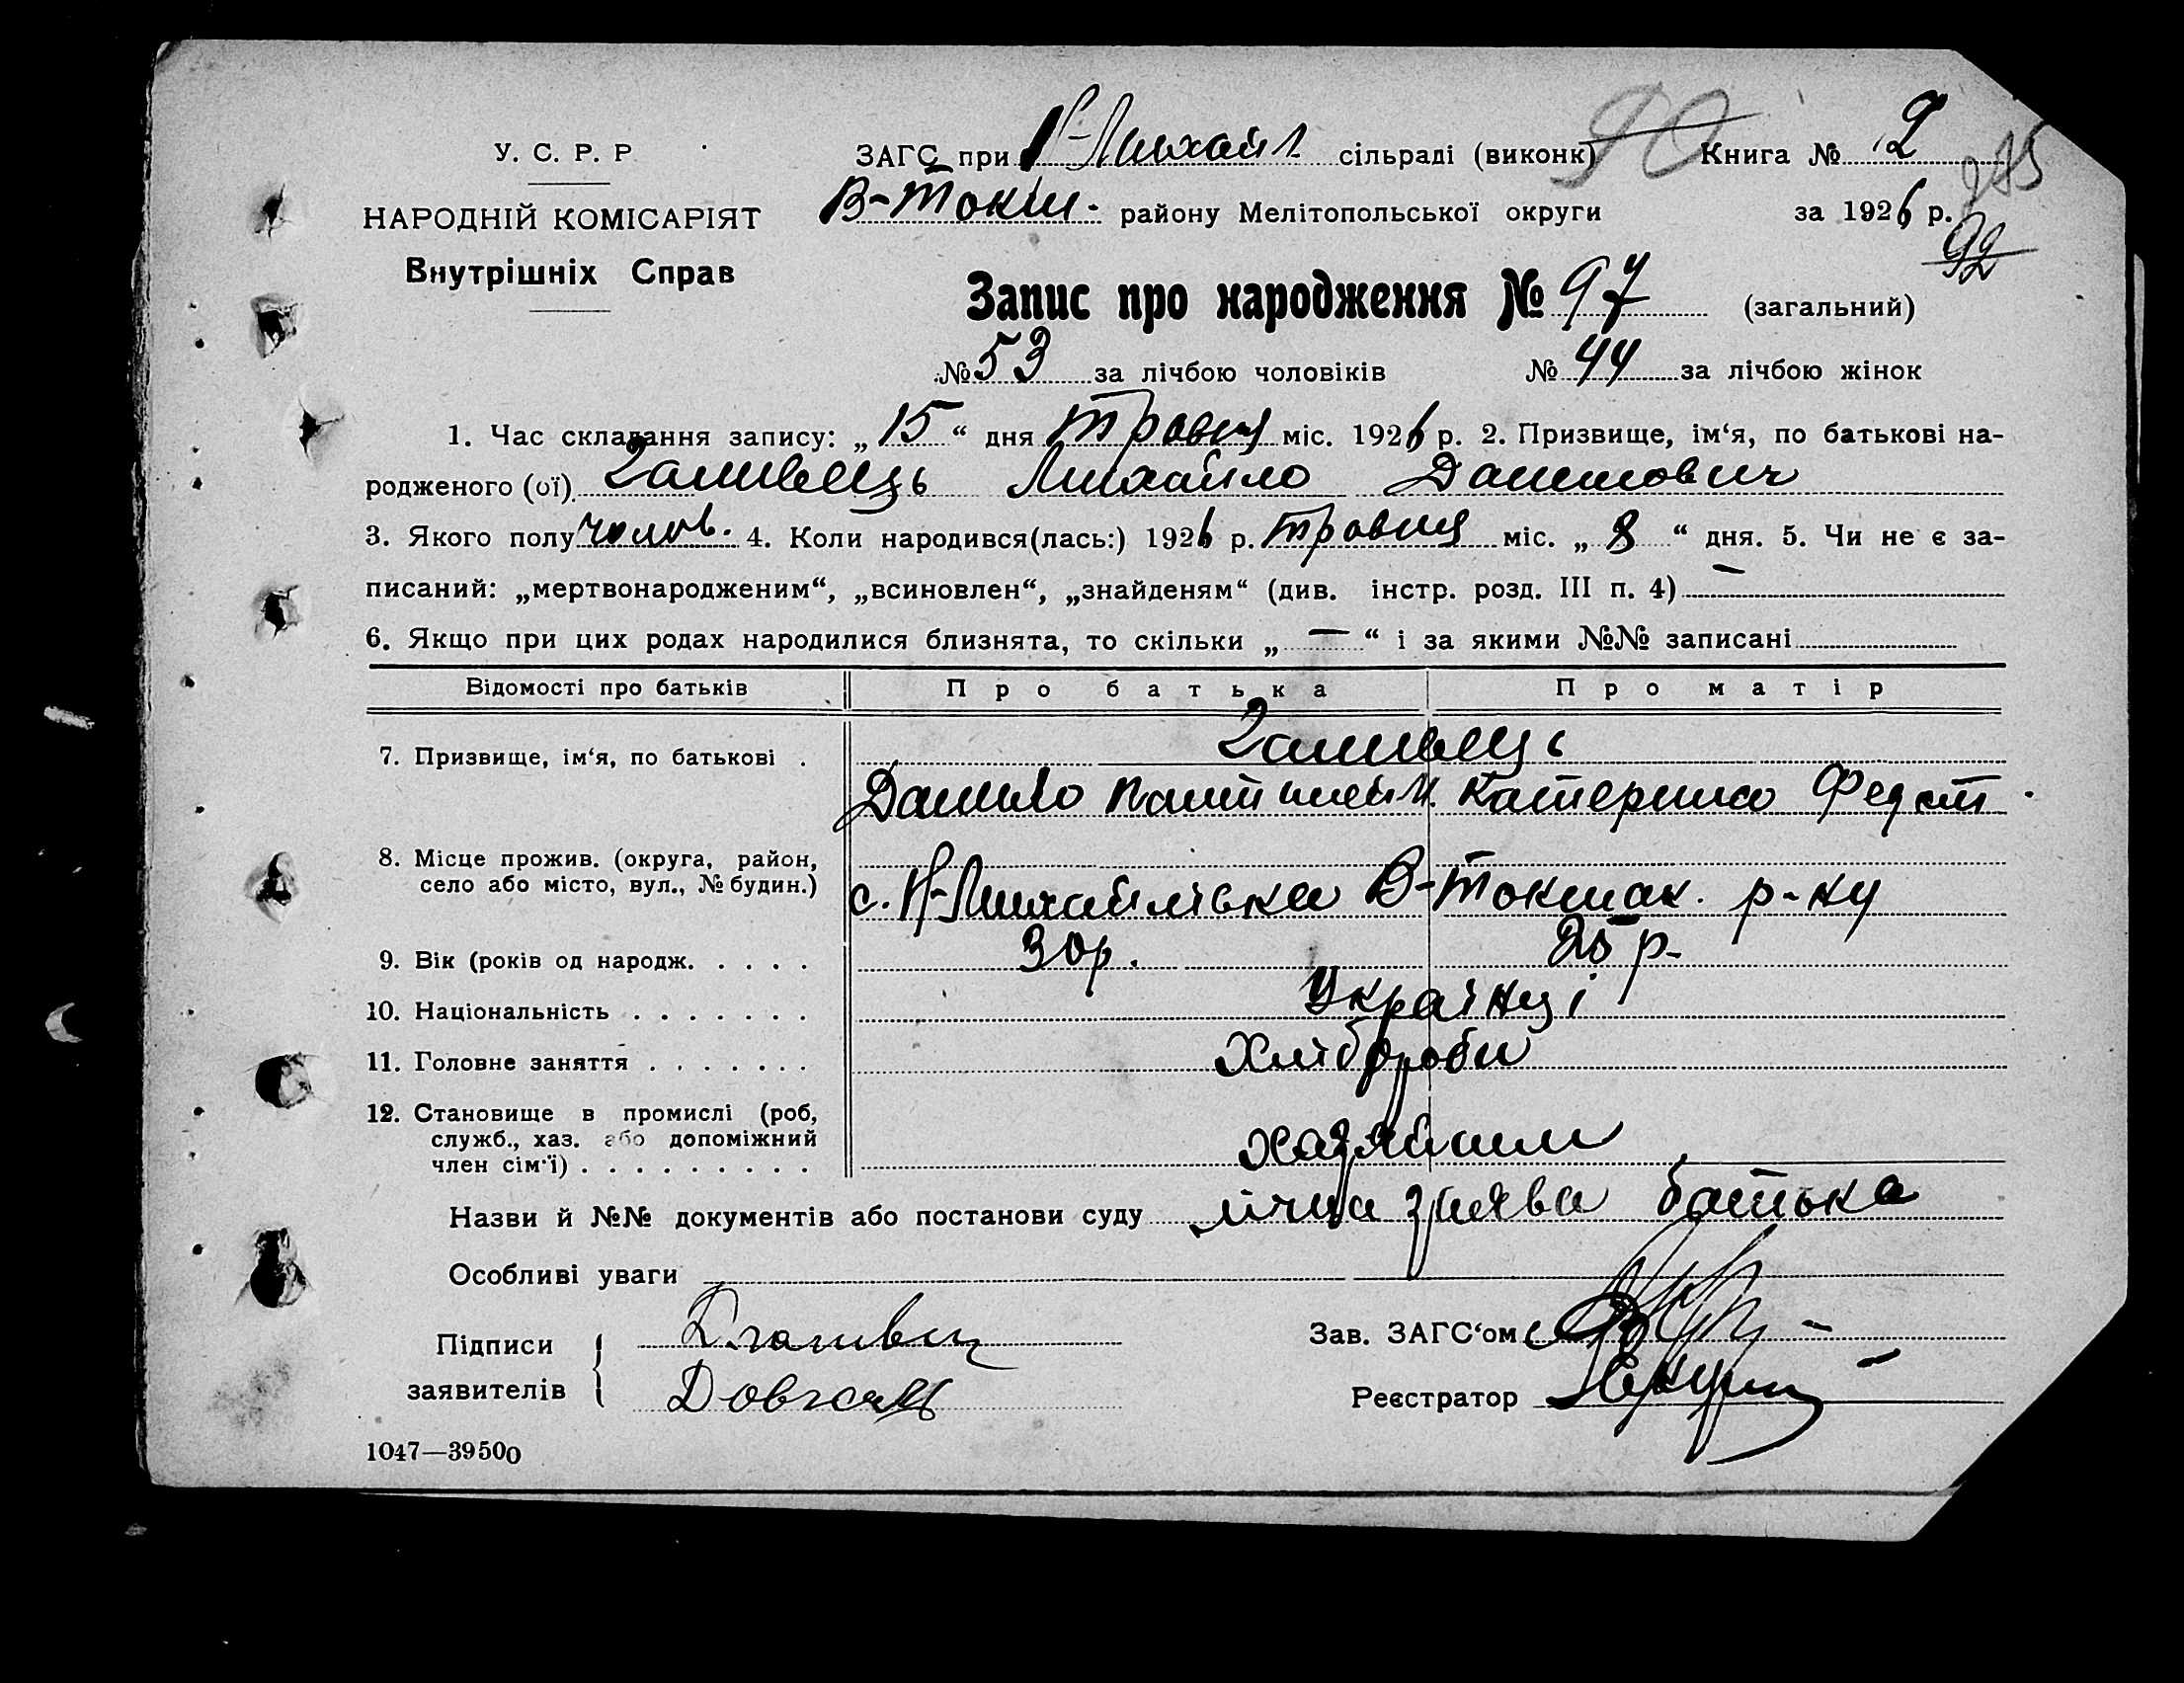 У. С. Р. Р
ЗАГС при Н-Михайл сільраді (виконк) 90 Книга № 2
275
НАРОДНІЙ КОМІСАРІЯТ
В-Токм. району Мелітопольської округи за 1926 р.
92
Внутрішніх Справ
Запис про народження № 97 (загальний)
№ 53 за лічбою чоловіків № 44 за лічбою жінок
1. Час складання запису: „15“ дня травця міс. 1926 р. 2. Призвище, ім‘я, по батькові на-
родженого (ої) Галивець Михайло Данилович
3. Якого полу чолов. 4. Коли народився(лась:) 1926 р. травця міс. „8“ дня. 5. Чи не є за-
писаний: „мертвонародженим“, „всиновлен“, „знайденям“ (див. інстр. розд. III п. 4) —
6. Якщо при цих родах народилися близнята, то скільки „—“ і за якими №№ записані
Відомості про батьків Про батька Про матір
7. Призвище, ім‘я, по батькові . Галивець
Данило Пантилейм. Катерина Федот.
8. Місце прожив. (округа, район,
село або місто, вул., № будин.) с. Н-Михайлівка В-Токмак. р-ну
9. Вік (років од народж. . . . . 30 р. 25 р.
10. Національність . . . . . . . Українці
11. Головне заняття . . . . . . . Хлібороби
12. Становище в промислі (роб,
служб., хаз. або допоміжний
член сім‘ї) . . . . . . . . . хазяїни
Назви й №№ документів або постанови суду заява батька
Особливі уваги
Підписи
Зав. ЗАГС‘ом
заявителів
Реєстратор
1047—39500